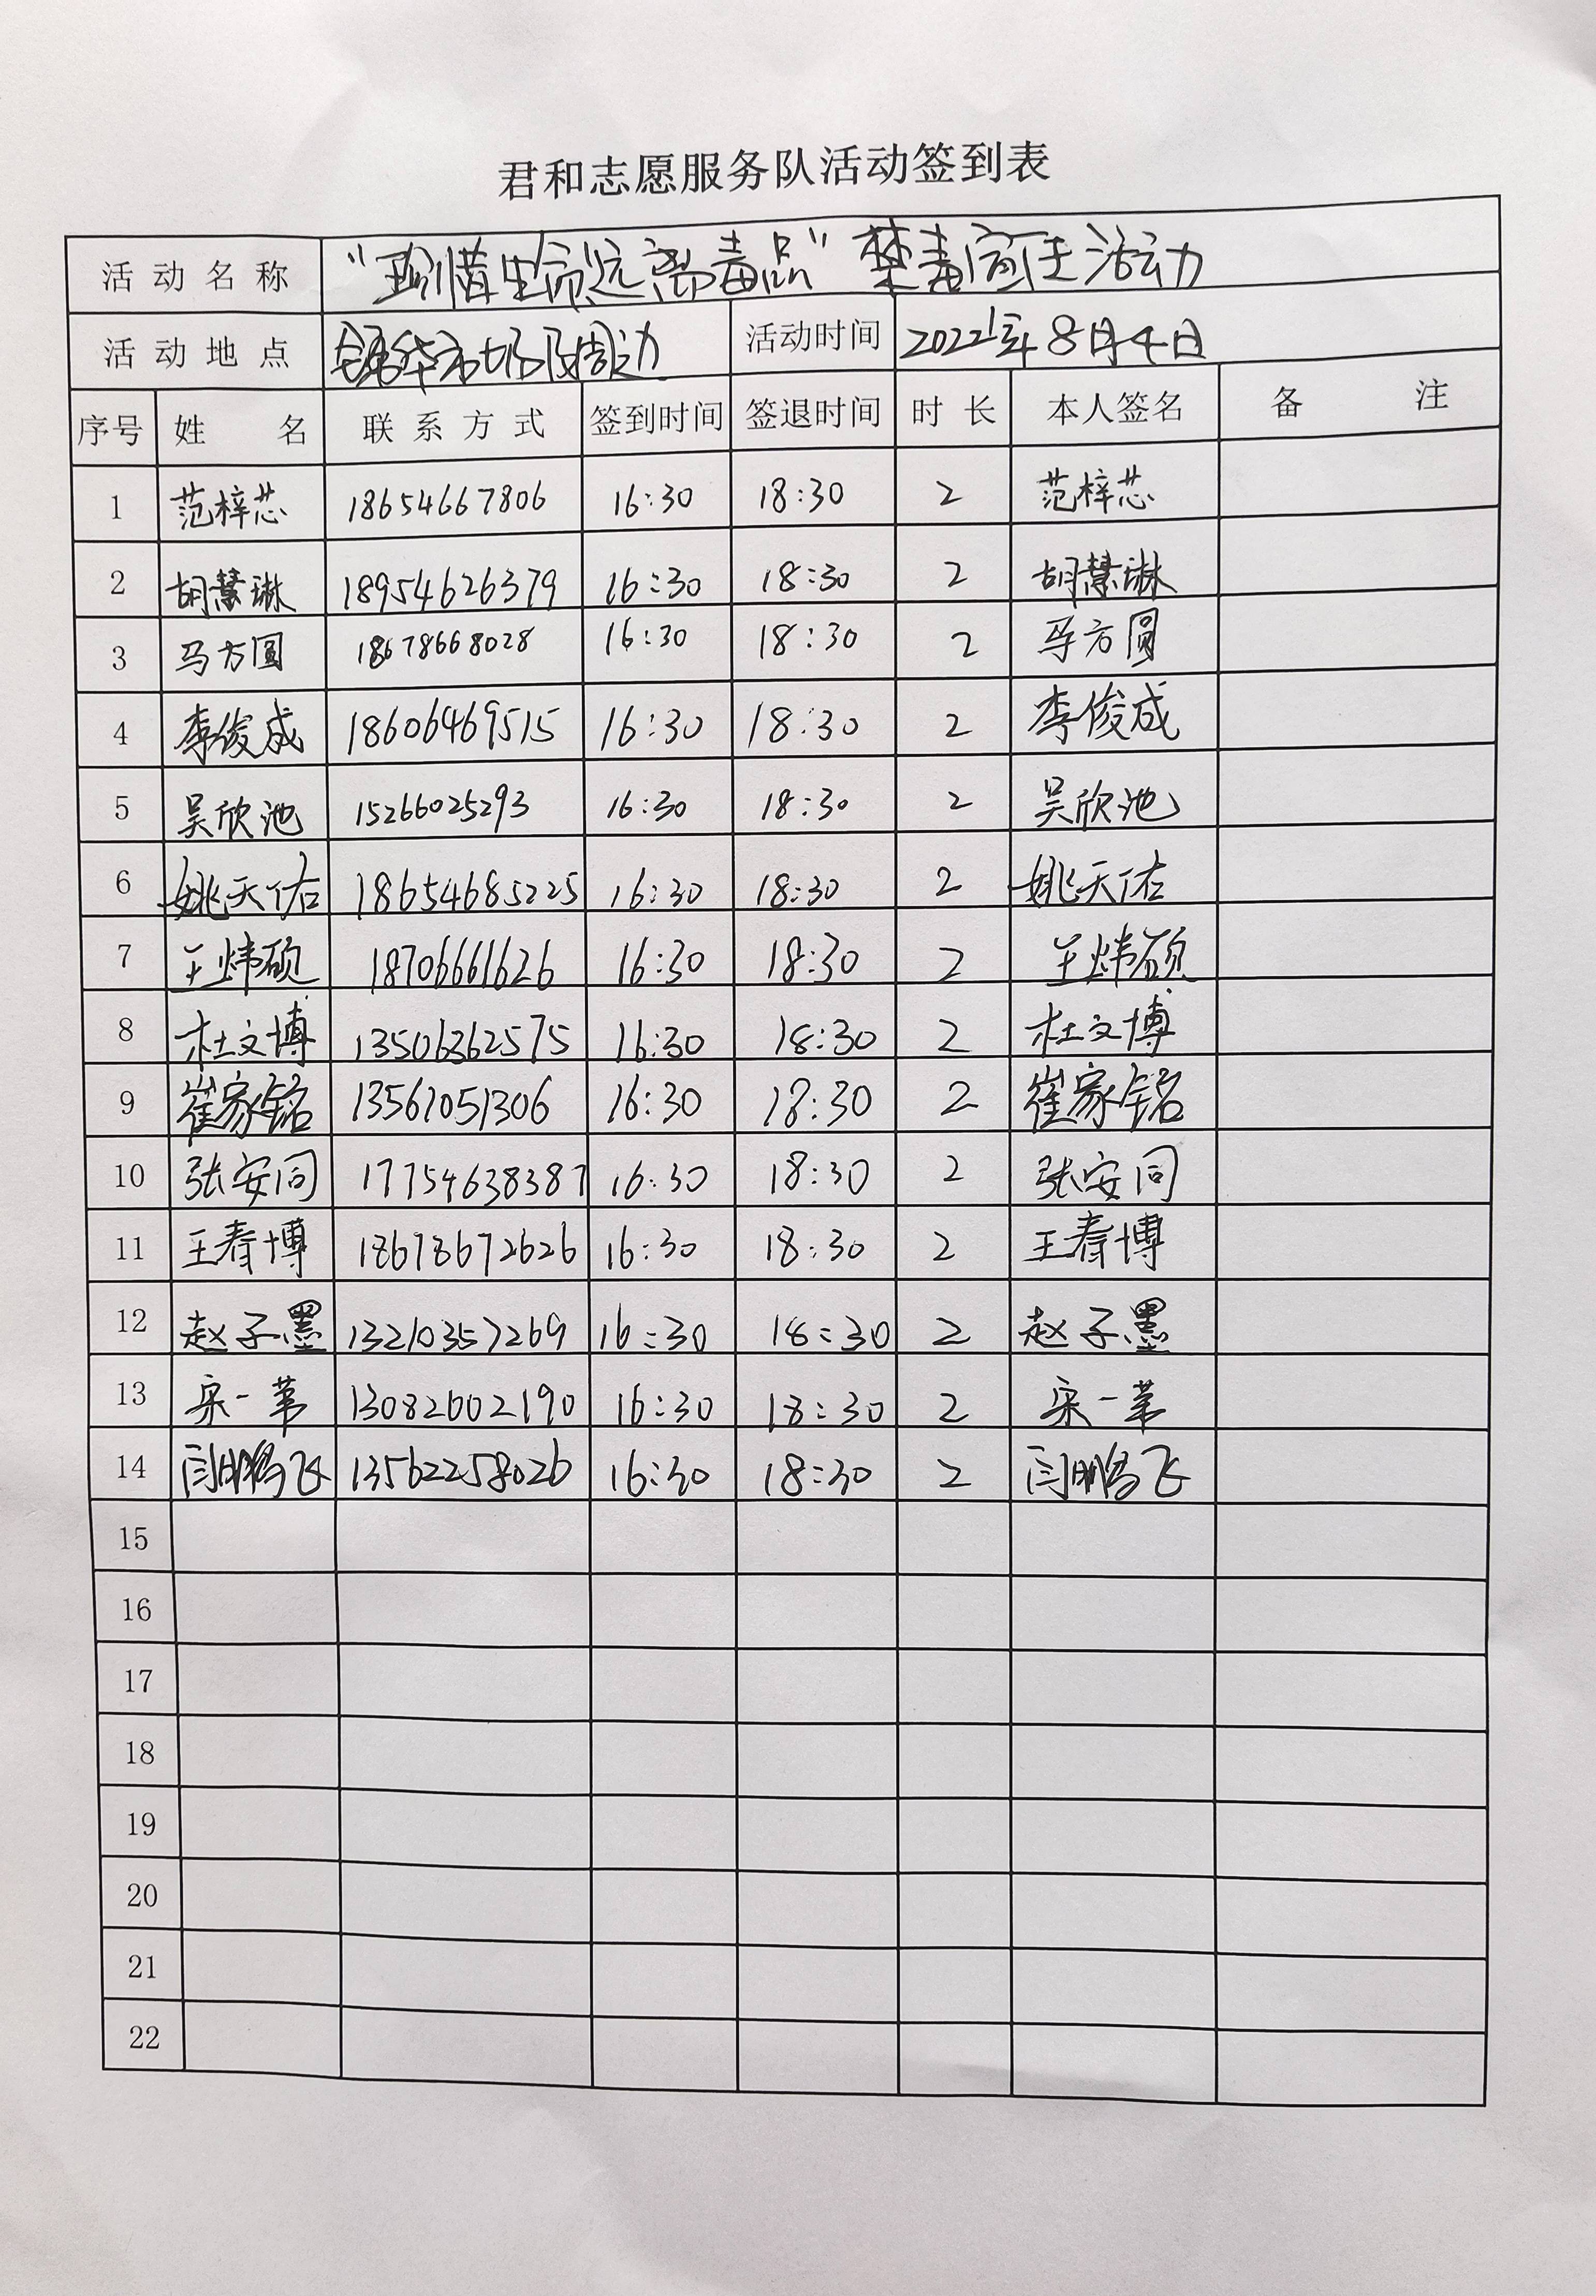 君和志愿服务队活动签到表
活动名称 “珍惜生命远离毒品”禁毒宣传活动
活动地点 锦华市场及周边 活动时间 2022年8月4日
序号 姓名 联系方式 签到时间 签退时间 时长 本人签名 备注
1 范梓芯 18654667806 16:30 18:30 2 范梓芯
2 胡慧琳 18954626379 16:30 18:30 2 胡慧琳
3 马方圆 18678668028 16:30 18:30 2 马方圆
4 李俊成 18606469515 16:30 18:30 2 李俊成
5 吴欣池 15266025293 16:30 18:30 2 吴欣池
6 姚天佑 18654685225 16:30 18:30 2 姚天佑
7 王炜硕 18706661626 16:30 18:30 2 王炜硕
8 杜文博 13506362575 16:30 18:30 2 杜文博
9 崔家铭 13561051306 16:30 18:30 2 崔家铭
10 张安同 17754638387 16:30 18:30 2 张安同
11 王春博 18678672626 16:30 18:30 2 王春博
12 赵子墨 13210357269 16:30 18:30 2 赵子墨
13 宋一苇 13082602190 16:30 18:30 2 宋一苇
14 闫鹏飞 13562258026 16:30 18:30 2 闫鹏飞
15
16
17
18
19
20
21
22